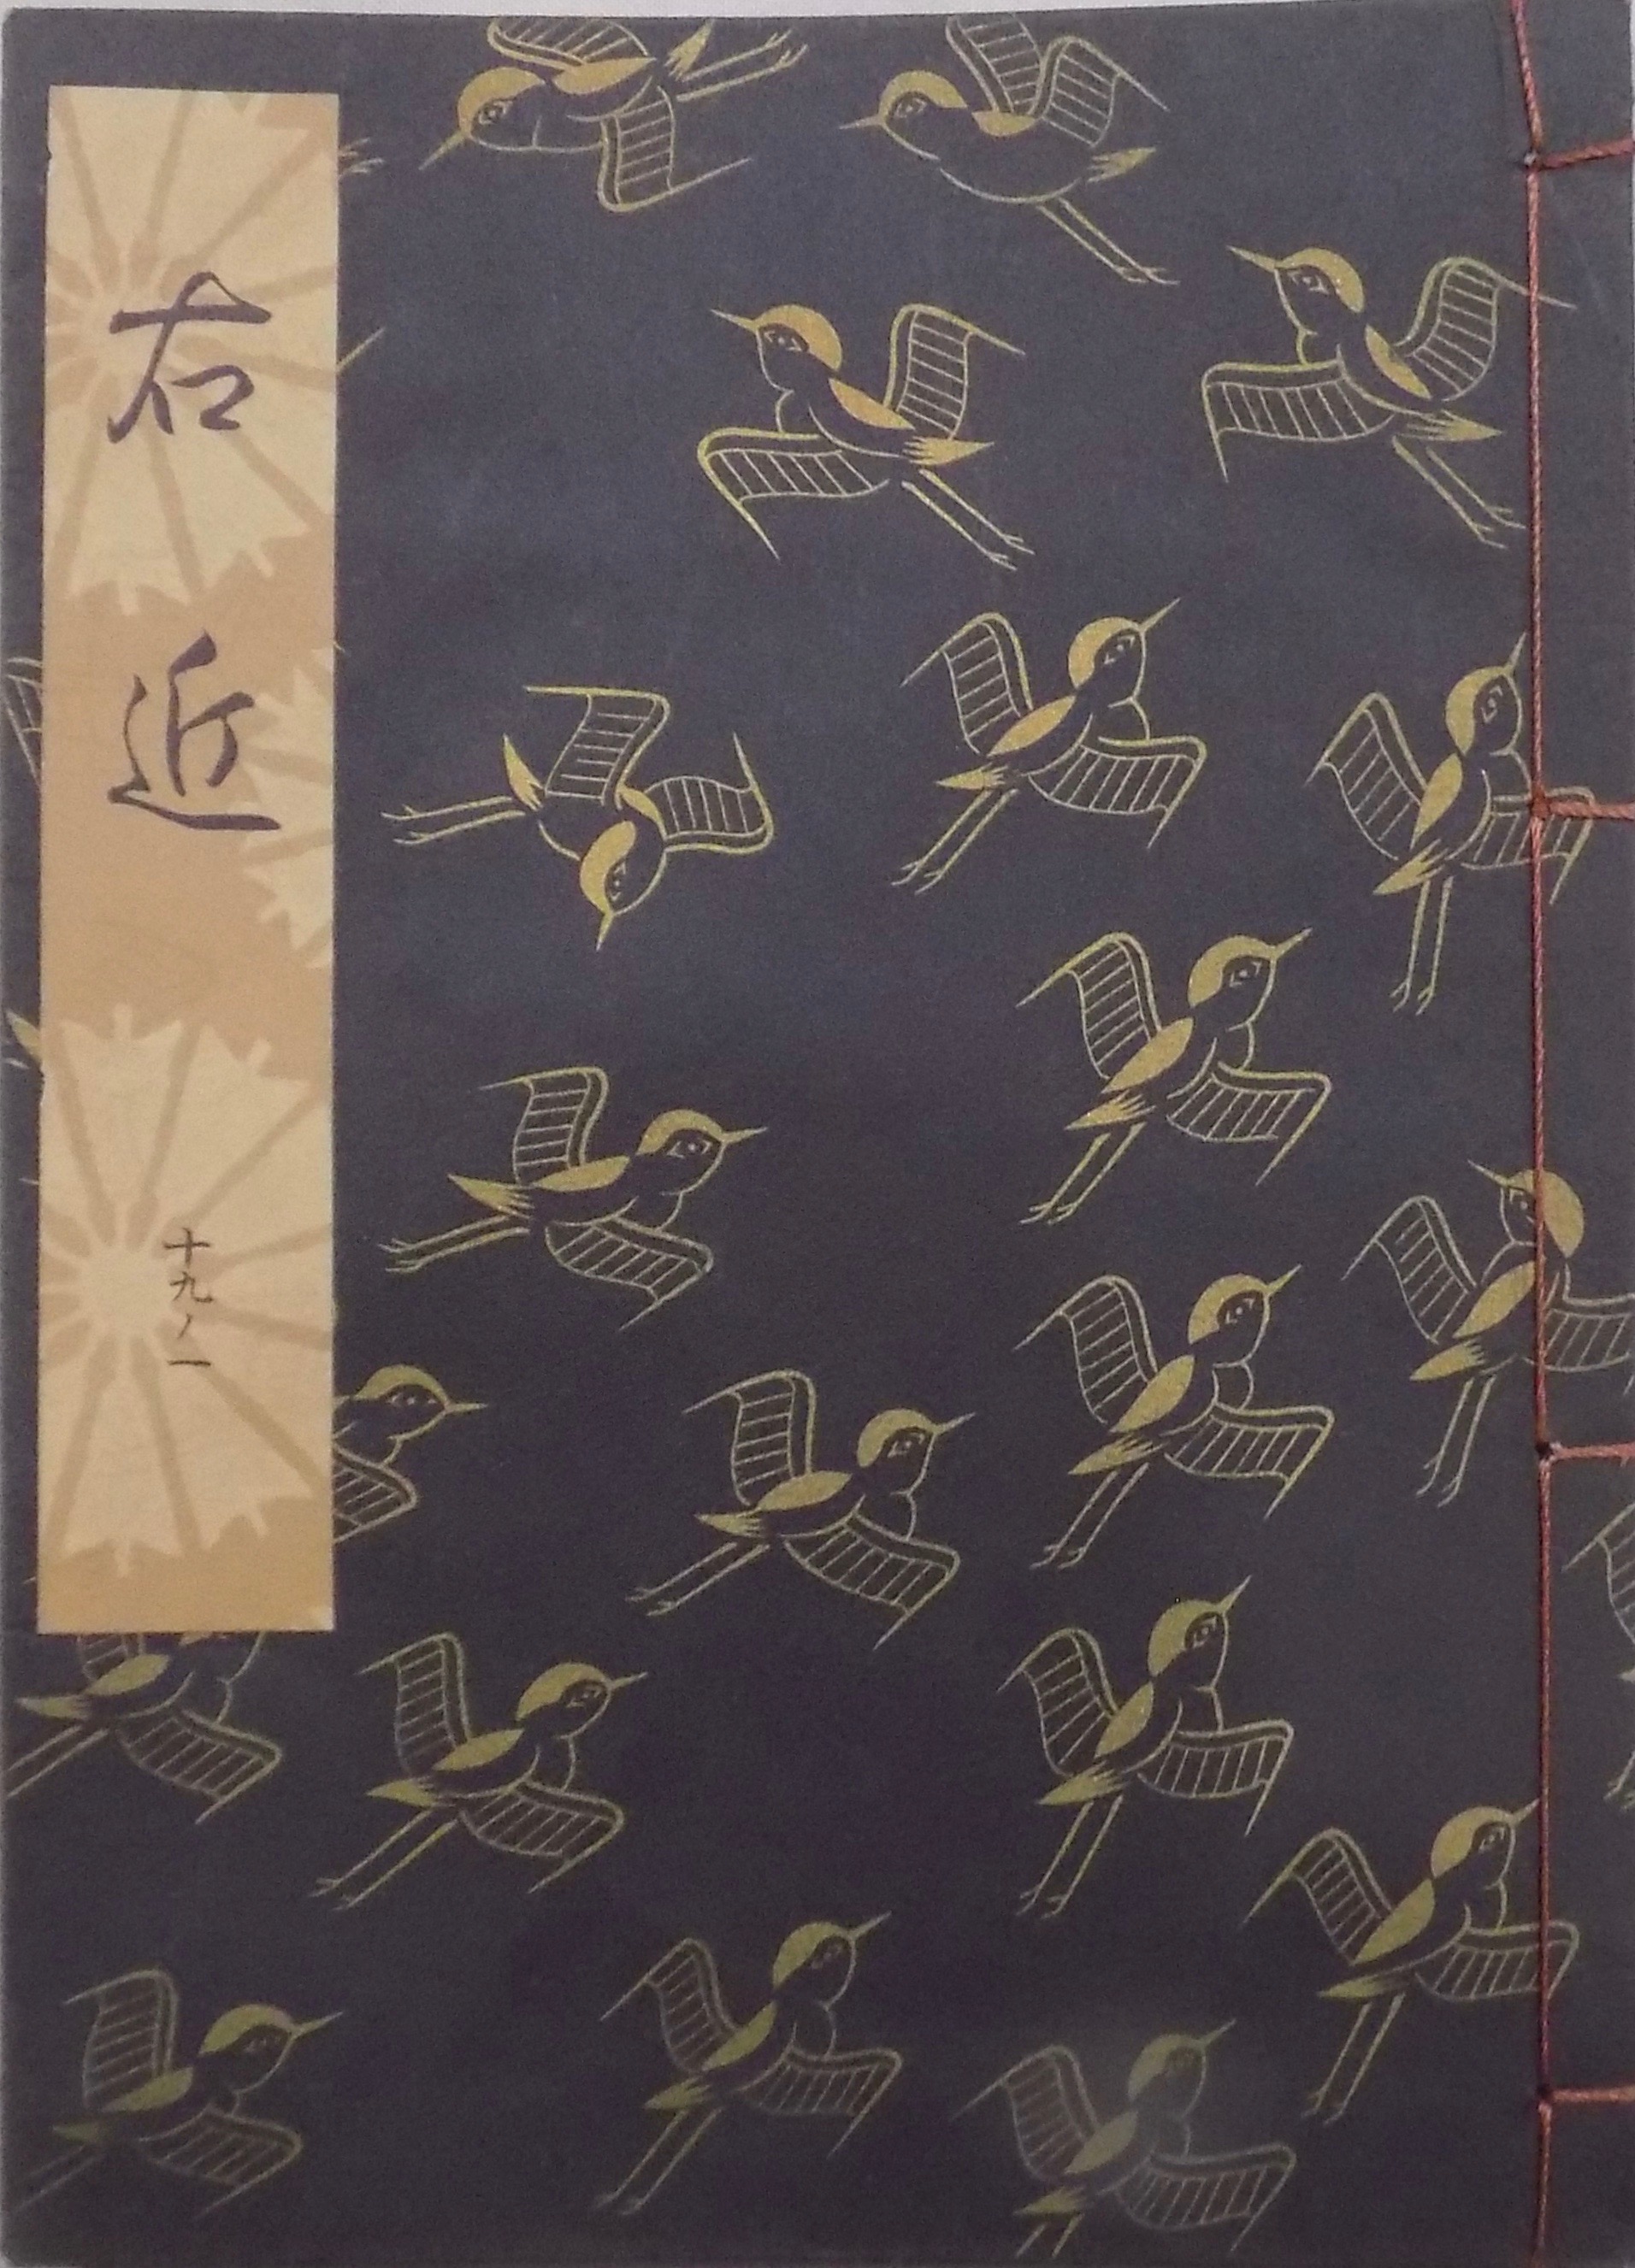 右近
十九ノ一